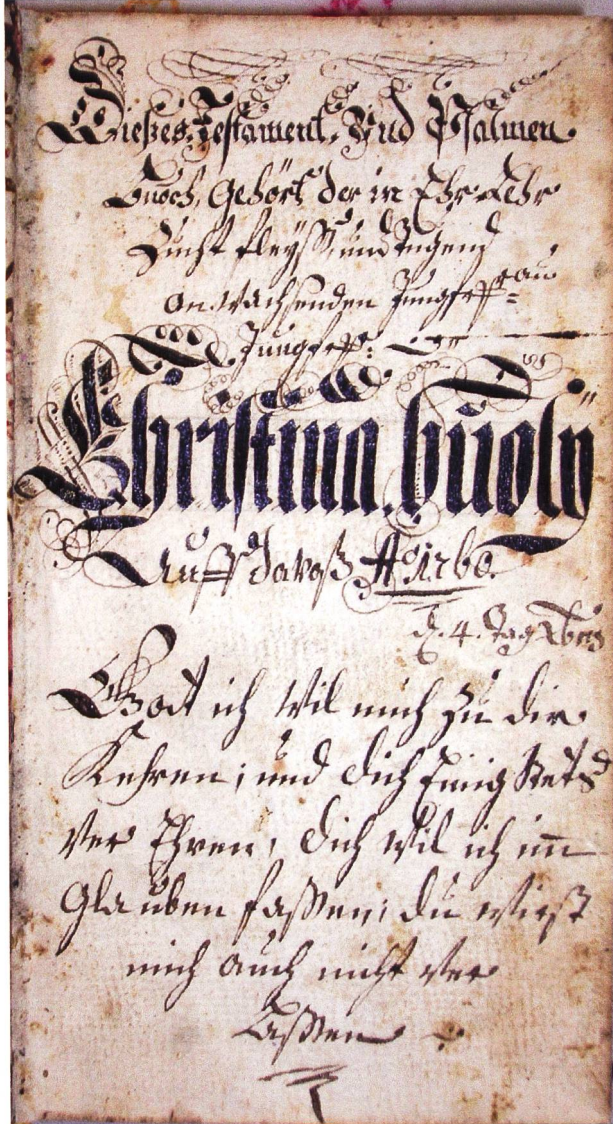 Dießes, Testament, Und Psalmen
Buoch, Gehört der in Ehr Lehr
Zucht fleÿß, und Tugend
an wachsenden Jungfr=au
Jungfr:
Christina. buolÿ
Auff davaß Aº 1760.
d. 4. Tag Xbris
Gott ich Wil mich zu dir
Kehren; und dich Einig Stets
Ver Ehren, dich Wil ich im
Glauben faßen; du Wirst
mich auch nicht Ver
Laßen